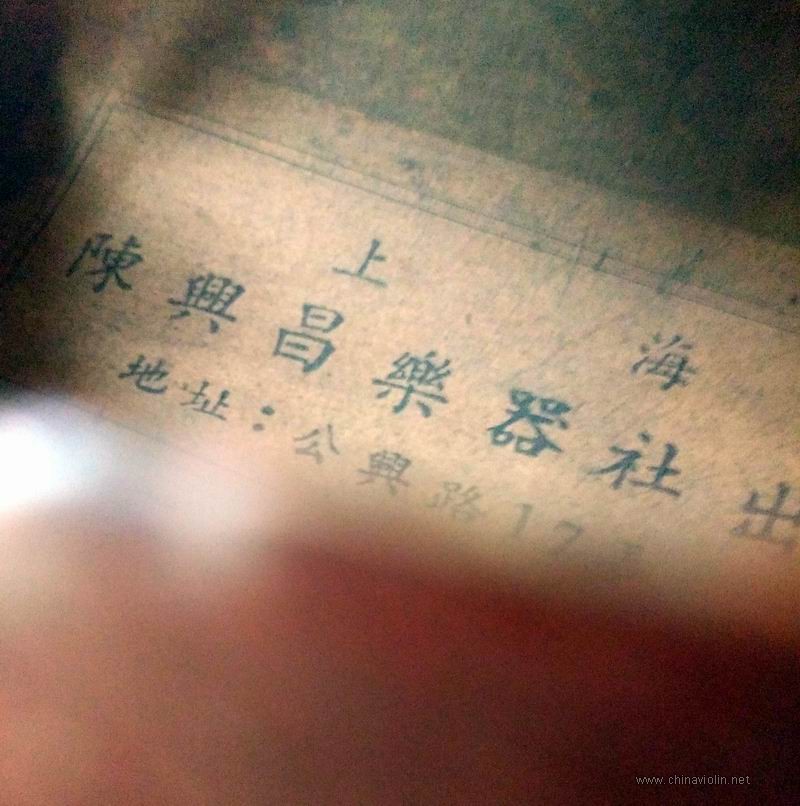 上 海
陳興昌樂器社出
地址：公興路17
www.chinaviolin.net